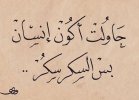 حاولت أكون إنسان
بس السكر سكر ..